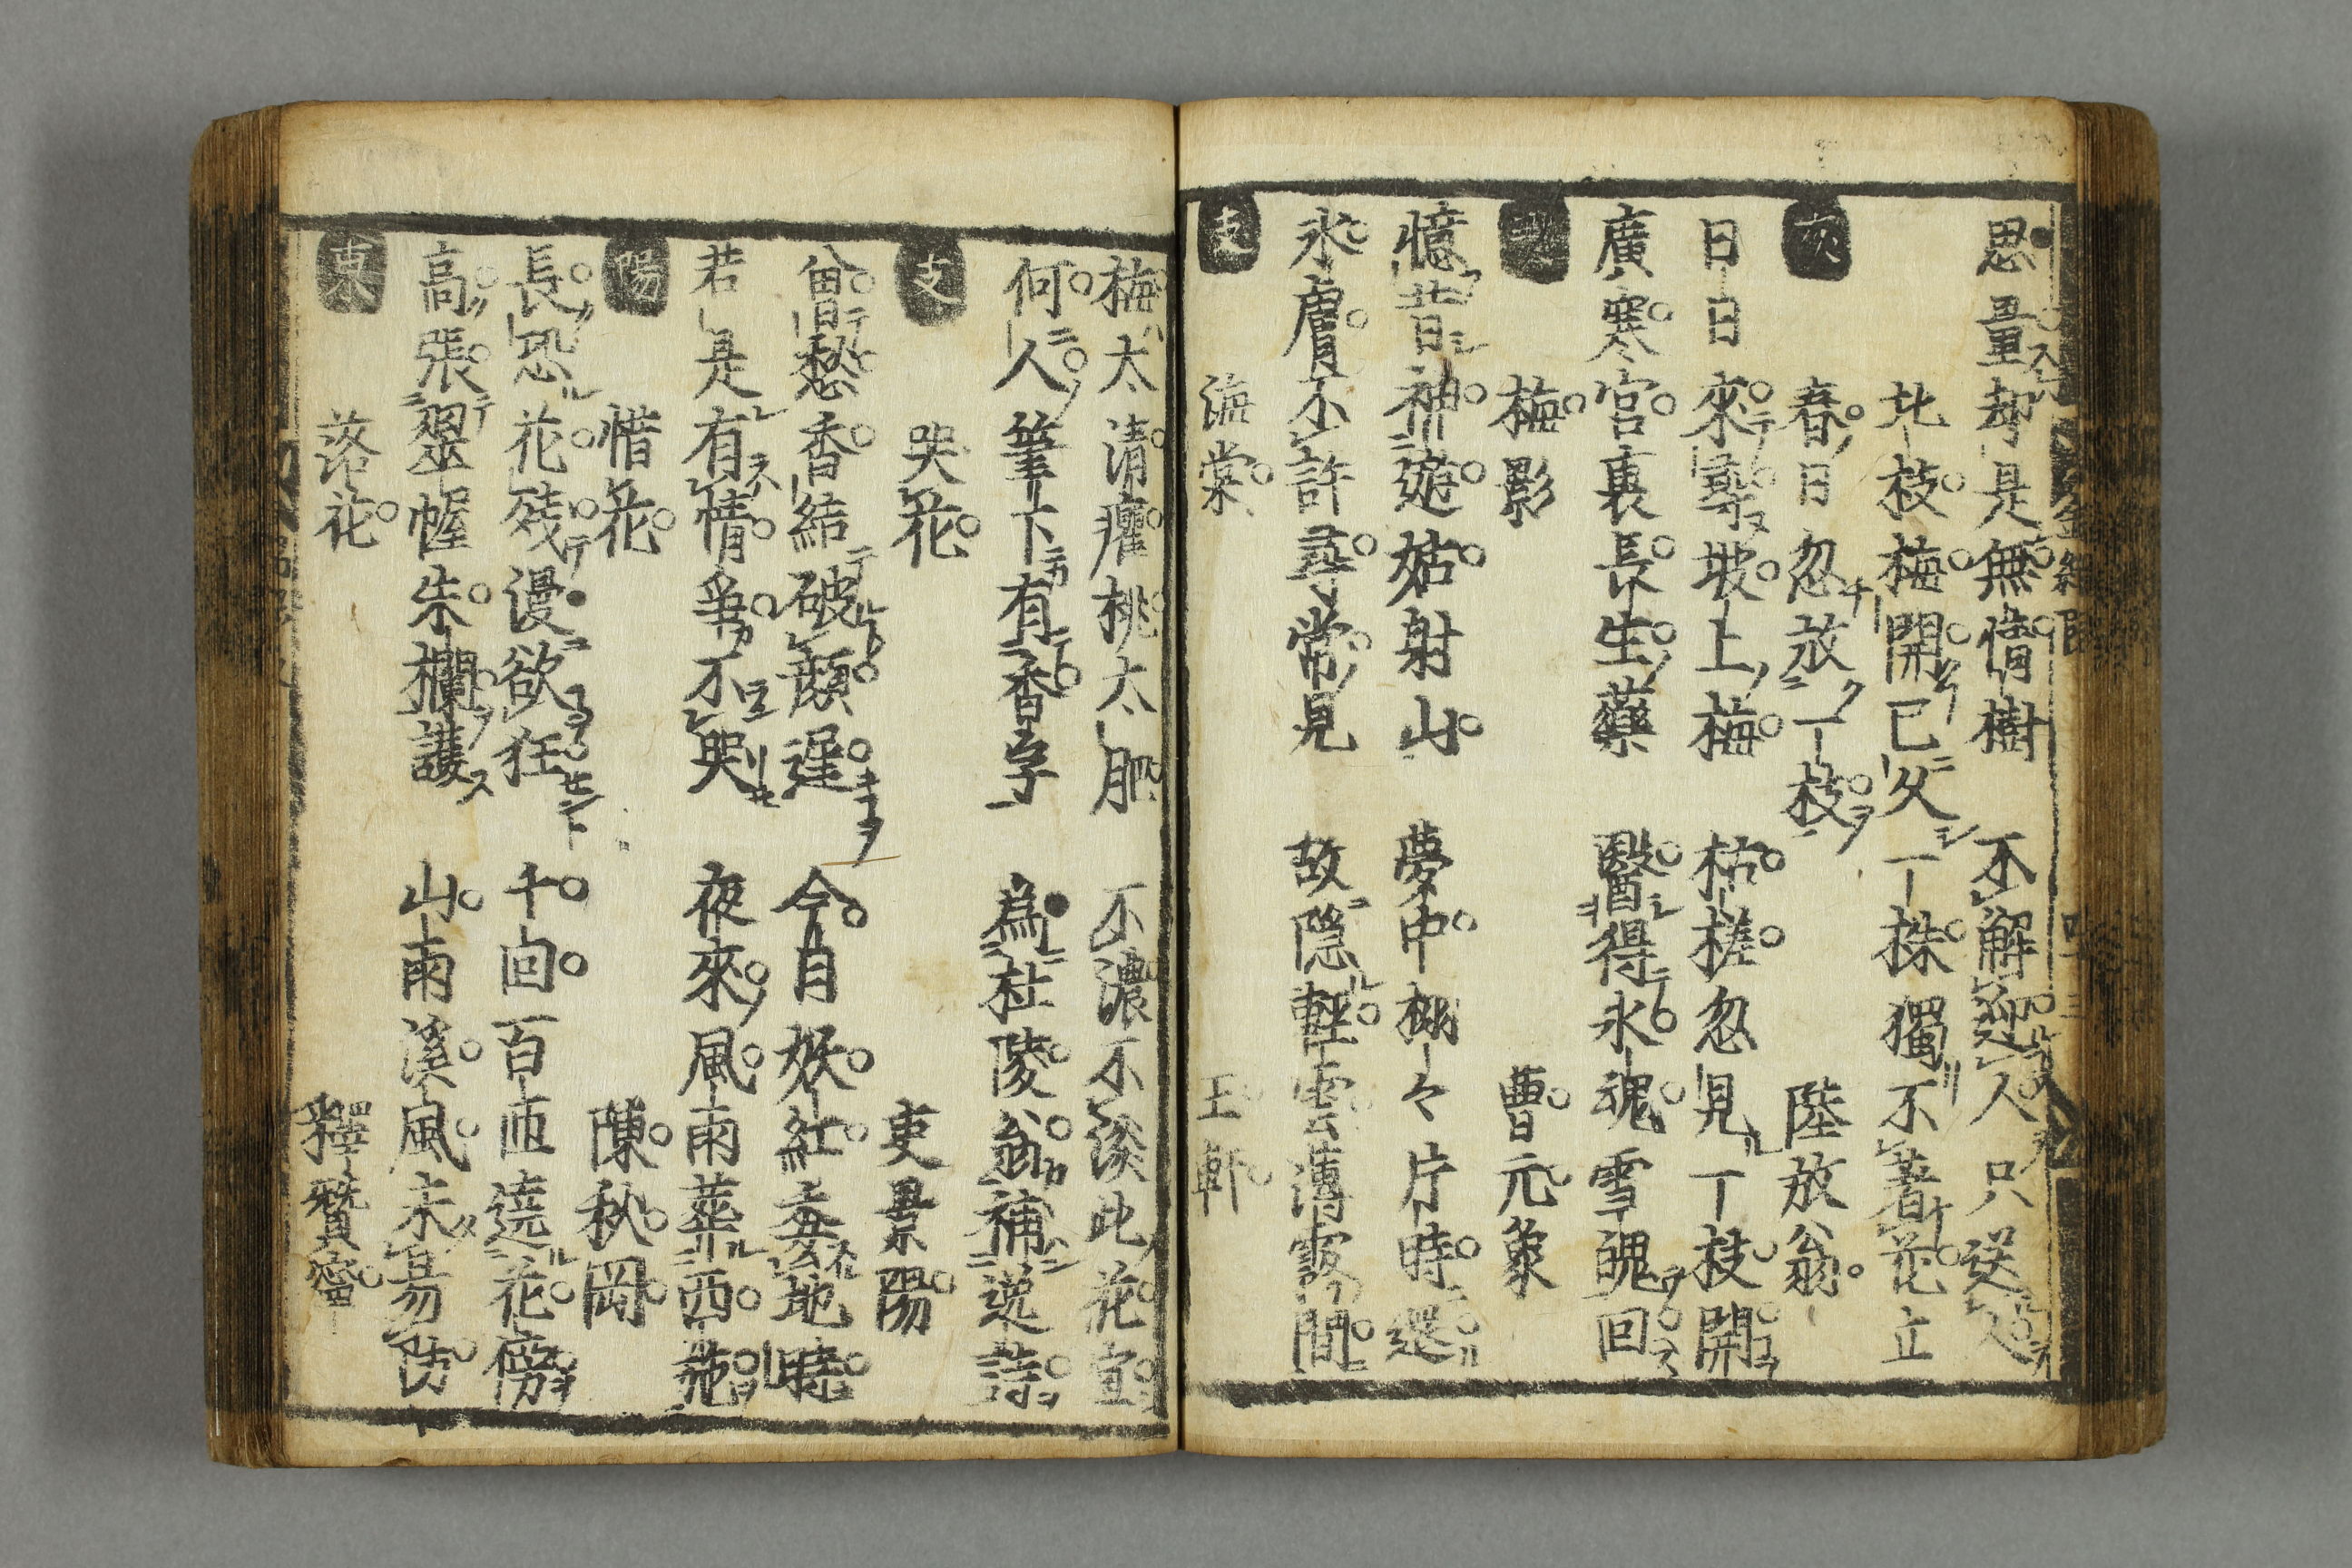 思量却是無情樹　不解迎人只送人
北枝梅開已久一株獨不著花立
春日忽放一枝　陸放翁
日日來尋坡上梅　枯槎忽見一枝開
廣寒宮裏長生藥　醫得氷魂雪魄回
梅影　曹元象
憶昔神遊姑射山　夢中栩々片時還
氷膚不許尋常見　故隱輕雲薄霧間
支　海棠　王軒
梅太清癯桃太肥　不濃不淡此花宜
何人筆下有香字　為杜陵翁補逸詩
支　哭花　韋景陽
曾愁香結破顏遲　今自妖紅委地時
若是有情爭不哭　夜來風雨葬西施
陽　惜花　陳秋岡
長恐花殘謾欲狂　千回百匝遶花傍
高張翠幄朱欄護　山雨溪風未易防
東　落花　釋贊寧